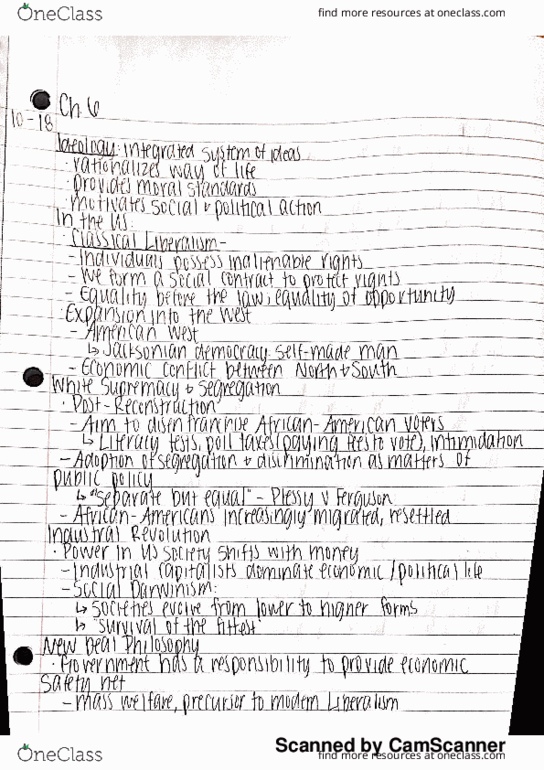 OneClass
find more resources at oneclass.com
Ch. 6
10-18
Ideology: integrated system of ideas
· rationalizes way of life
· provides moral standards
· motivates social & political action
In the US:
· Classical Liberalism-
- Individuals possess inalienable rights
- We form a social contract to protect rights
- Equality before the law; equality of opportunity
· Expansion into the West
- American West
↳ Jacksonian democracy: self-made man
- Economic conflict between North & South
White Supremacy & Segregation
· Post-Reconstruction
- Aim to disenfranchise African-American voters
↳ Literacy tests, poll taxes (paying fees to vote), intimidation
- Adoption of segregation & discrimination as matters of
public policy
↳ "separate but equal" - Plessy v Ferguson
- African-Americans increasingly migrated, resettled
Industrial Revolution
· Power in US society shifts with money
- Industrial capitalists dominate economic/political life
- Social Darwinism:
↳ societies evolve from lower to higher forms
↳ "survival of the fittest"
New Deal Philosophy
· Government has a responsibility to provide economic
safety net
- mass welfare, precursor to modern Liberalism
Scanned by CamScanner
OneClass
find more resources at oneclass.com